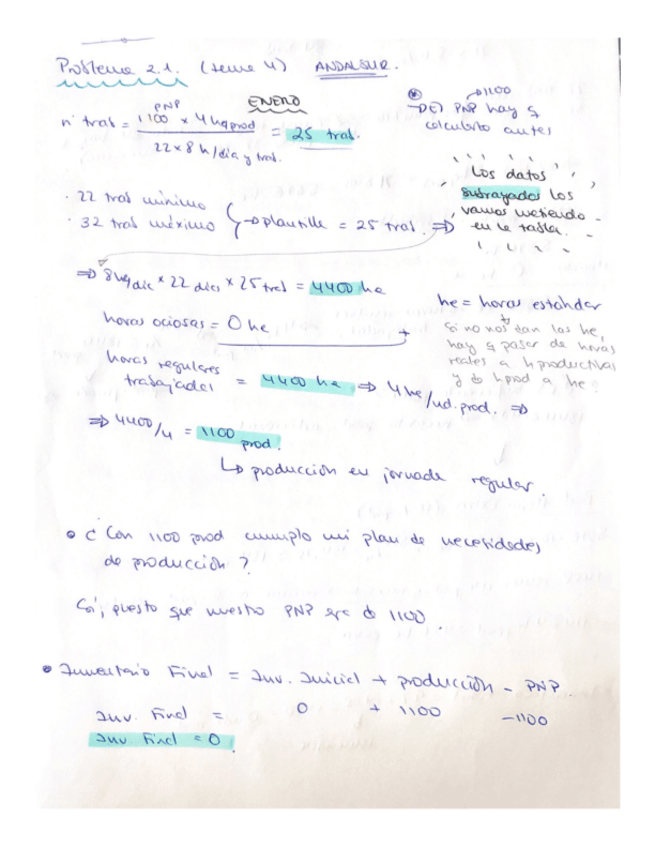 Problema 2.1. (tema 4) ANDALSUR.
ENERO
nº trab = PNP 1100 x 4 he/prod / 22 x 8 h/día y trab. = 25 trab.
* →1100
→ DEJ PNP hay q
calcularlo antes
· 22 trab mínimo
· 32 trab máximo
→ plantilla = 25 trab. ⇒
Los datos
subrayados los
vamos metiendo
en la tabla.
⇒ 8 he/día x 22 días x 25 trab = 4400 he
horas ociosas = 0 he
he = horas estándar
Si no nos dan las he,
hay q pasar de horas
reales a h productivas
y de h prod a he.
horas regulares
trabajadas = 4400 he ⇒ 4 he/ud. prod. ⇒
⇒ 4400/4 = 1100 prod.
↳ producción en jornada regular.
• ¿ Con 1100 prod cumplo mi plan de necesidades
de producción ?
Sí, puesto que nuestro PNP era de 1100.
• Inventario Final = Inv. Inicial + producción - PNP
Inv. Final = 0 + 1100 -1100
Inv. Final = 0.